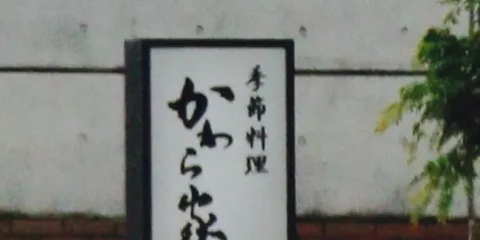 季節料理
かわら